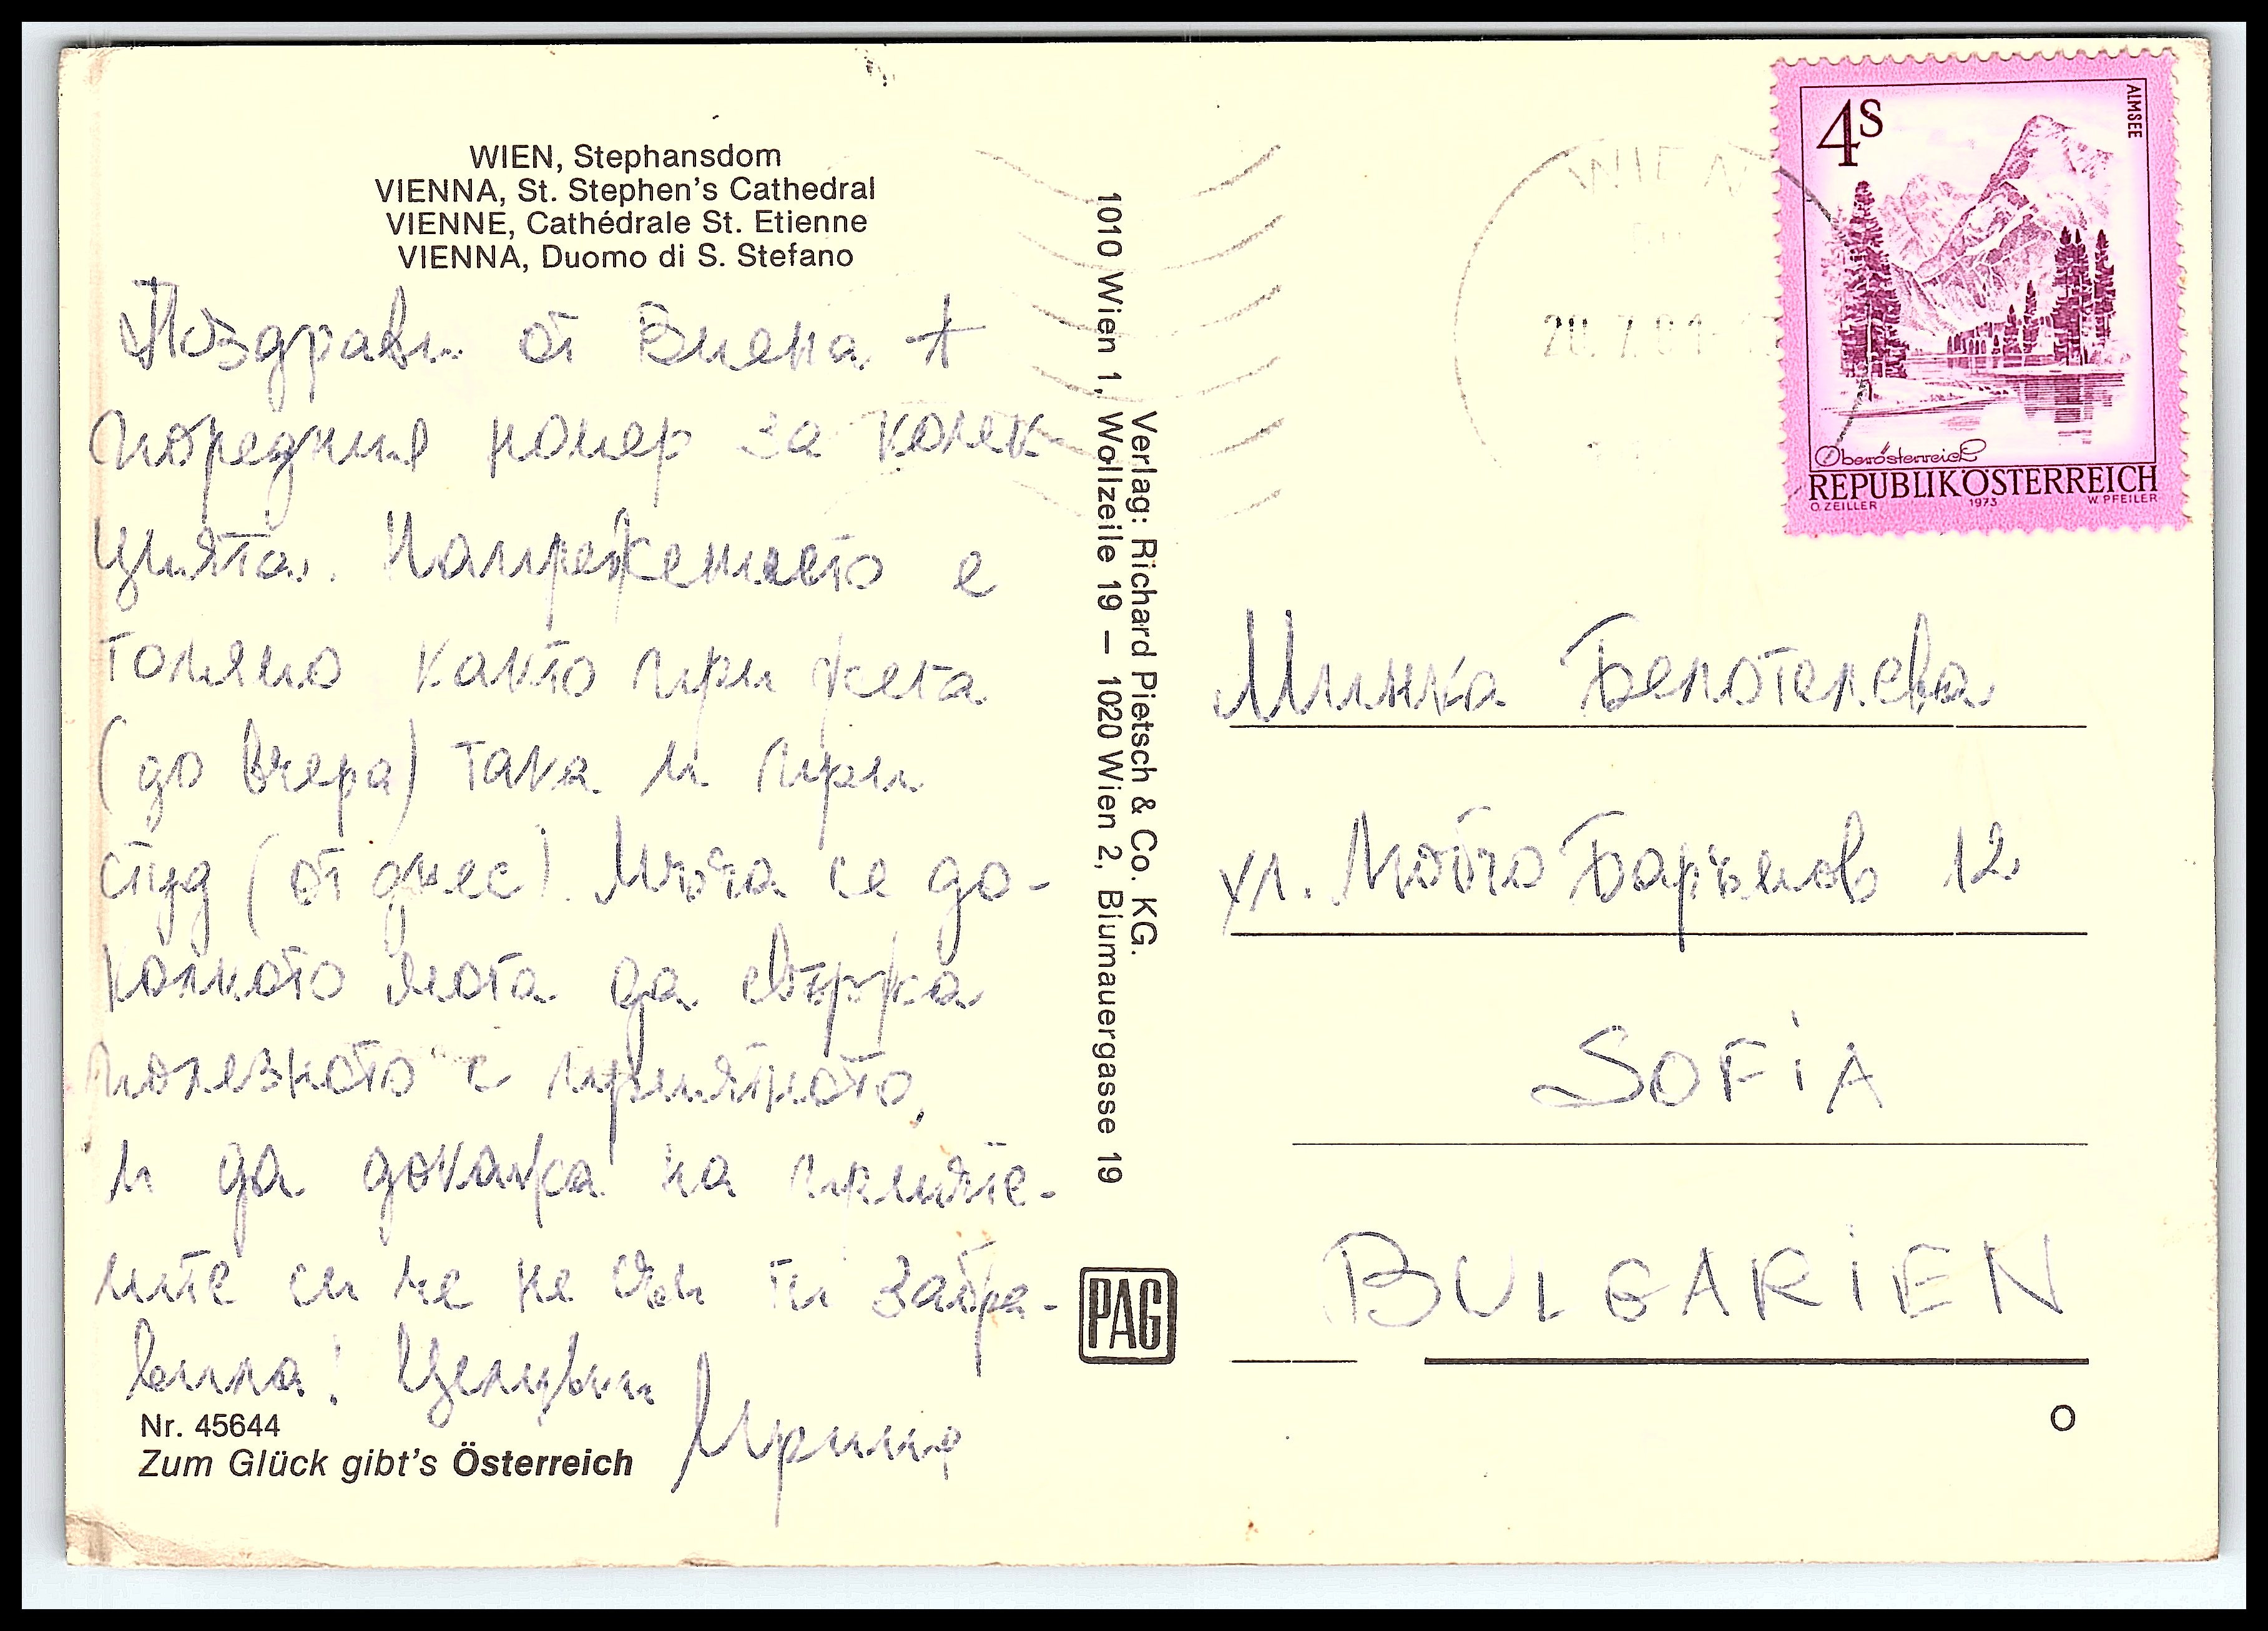 WIEN, Stephansdom
VIENNA, St. Stephen's Cathedral
VIENNE, Cathédrale St. Etienne
VIENNA, Duomo di S. Stefano
Поздрави от Виена +
поредния номер за колек-
цията. Напрежението е
голямо както при жега
(до вчера) така и при
студ (от днес). Мъча се до-
колкото мога да свържа
полезното с приятното,
и да докажа на прияте-
лите си че не съм ги забра-
вила! Целувки
Ирина
Nr. 45644
Zum Glück gibt's Österreich
Verlag: Richard Pietsch & Co. KG.
1010 Wien 1, Wollzeile 19 — 1020 Wien 2, Blumauergasse 19
PAG
WIEN
20. 7.
4S
ALMSEE
Oberösterreich
REPUBLIK ÖSTERREICH
O. ZEILLER 1973 W. PFEILER
Минка Белотелева
ул. Бойчо Бърълов 12
SOFIA
BULGARIEN